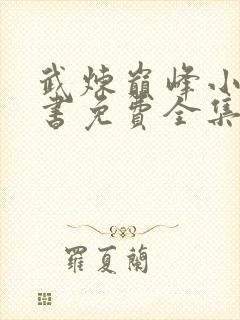 武炼巅峰小
書免費全集
羅夏蘭